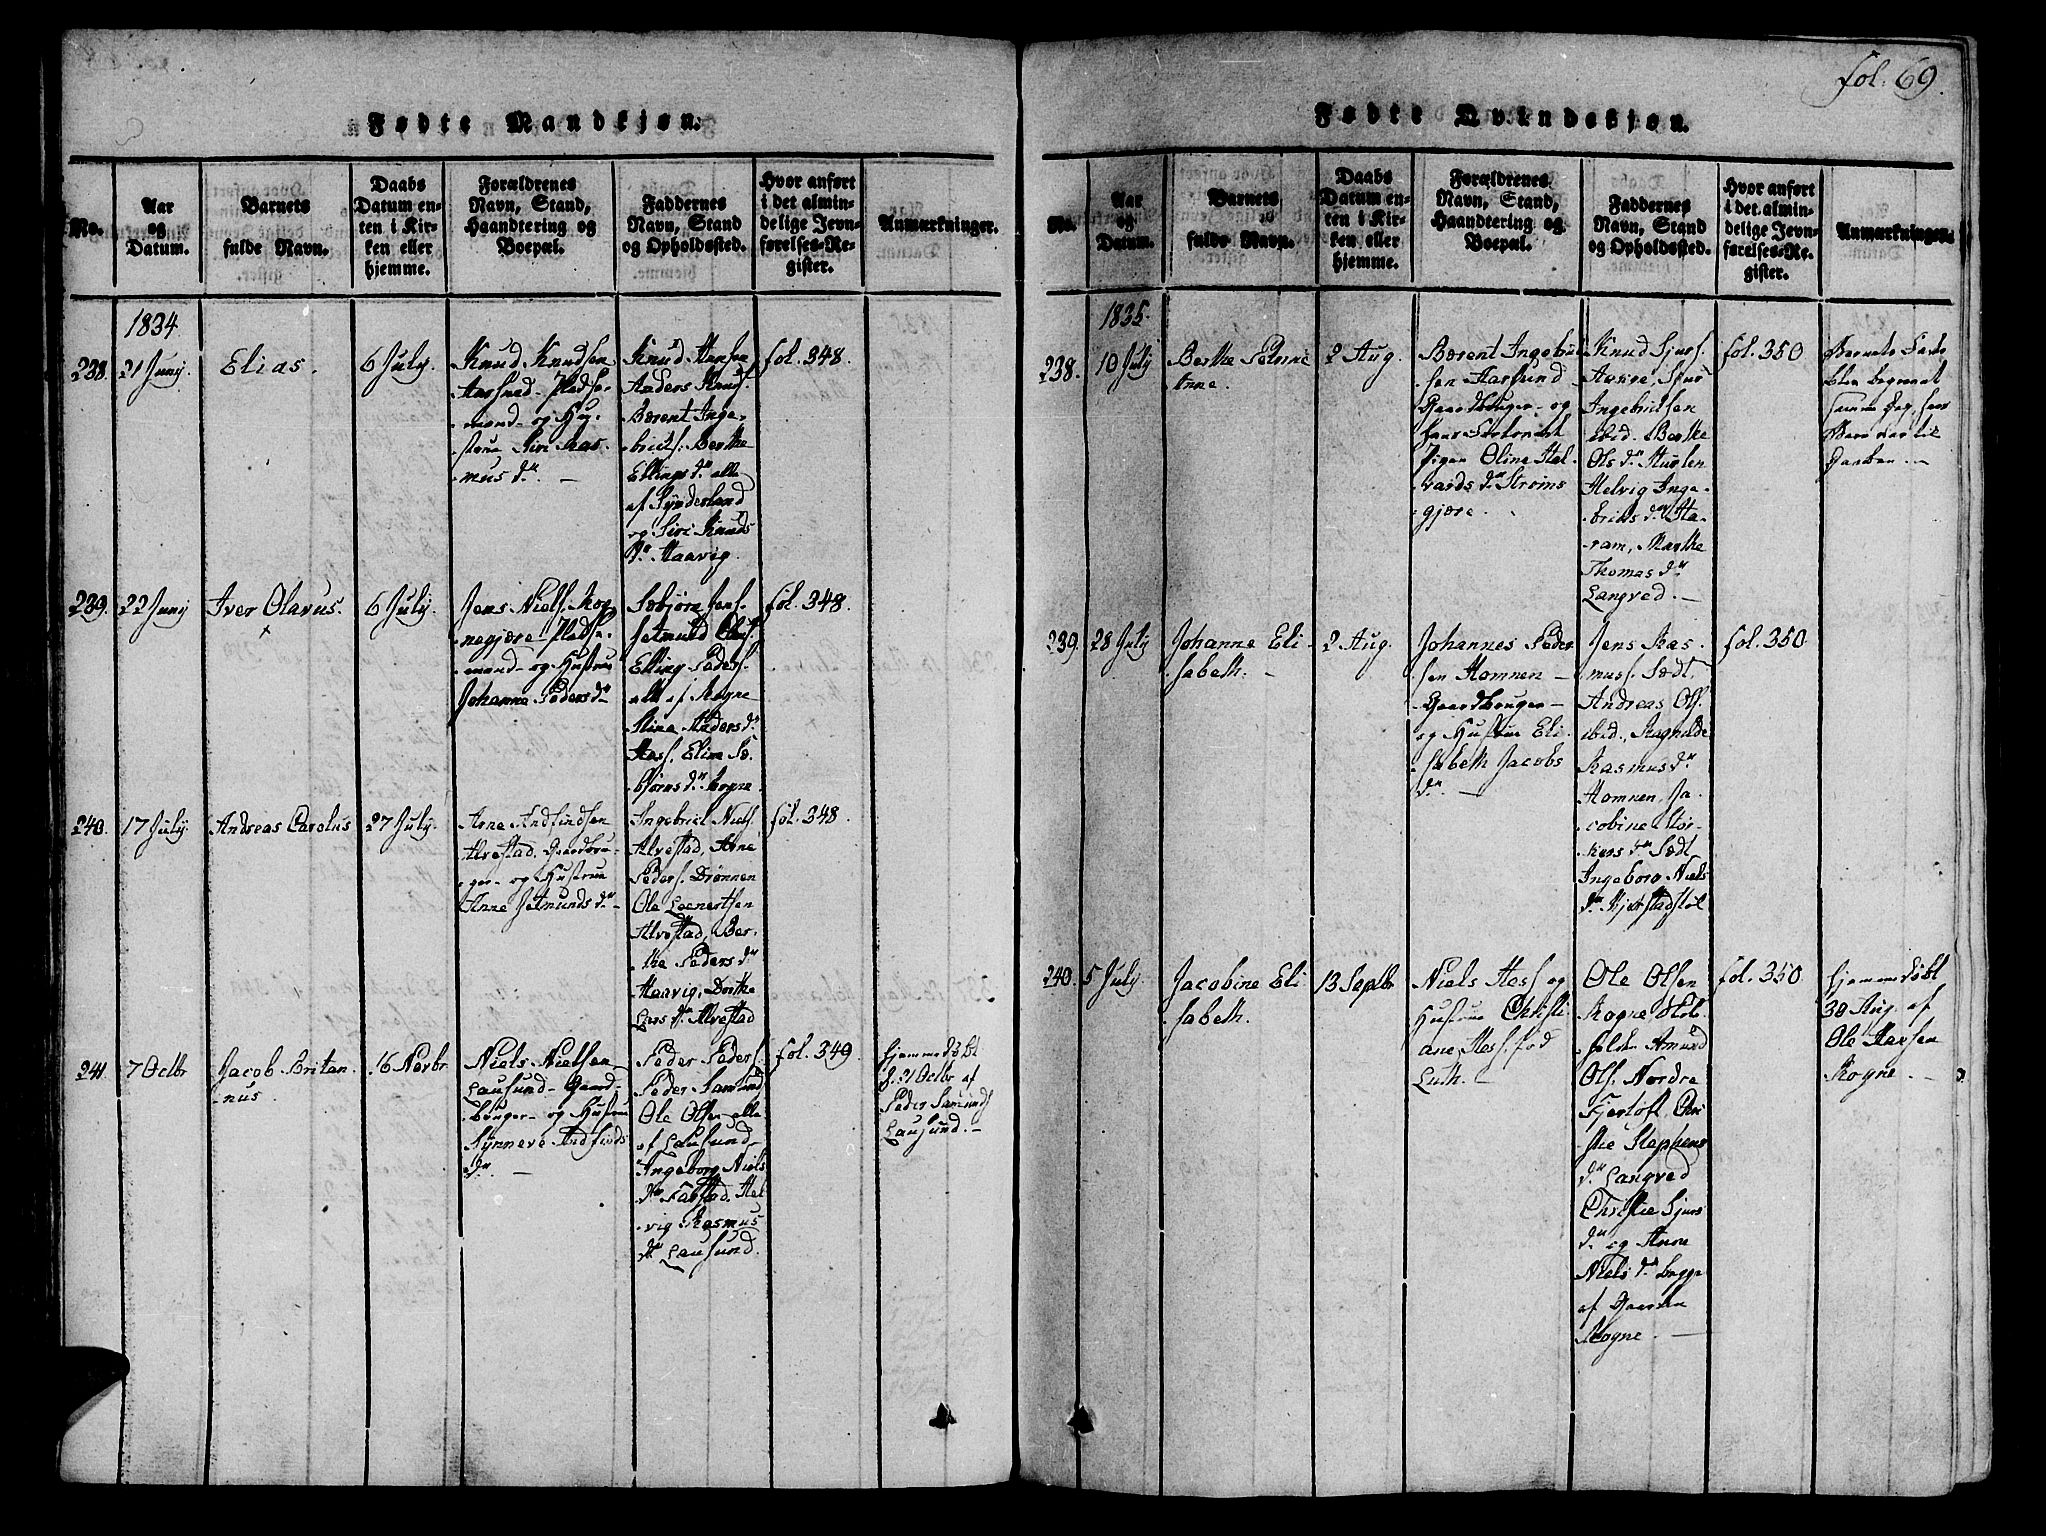 fol. 69.
Fødte Mandkjøn.
No.
Aar
og
Datum.
Barnets
fulde Navn.
Daabs
Datum en-
ten i Kir-
ken eller
hjemme.
Forældrenes
Navn, Stand,
Haandtering og
Boepæl.
Faddernes
Navn, Stand
og Opholdssted.
Hvor anført
i det almin-
delige Jevn-
førelses-Re-
gister.
Anmærkninger.
1834
238.
21 Juny
Elias.
6 July.
Knud Knudsen
Aarsund Pladse-
mand og Hu-
strue Siri Ras-
mus dr.
Knud Hansen
Anders Knuds.
Bærent Inge-
brigts. Berthe
Ellings dr alle
af Synderland
og Siri Knuds
dr. Haavig.
fol. 348.
239.
22 Juny
Iver Olavus.
6 July.
Jens Niels. Rog
negjære Pladse-
mand og Hustrue
Johanne Peders dr
Sæbjørn Jens.
Jetmund Ols.
Elling Peders.
alle af Rogne
Stine Anders dr
Hess. Eline Sæ-
bjørns dr. Rogne
fol. 348.
240.
17 July.
Andreas Carolus
27 July.
Arne Andfindsen
Alvestad, Gaardbru-
ger og Hustrue
Anne Jetmunds dr
Ingebrict Niels.
Alvestad, Arne
Peders. Drønnen
Ole Leenertsen
Alvestad, Ber-
the Peders dr
Haavig, Dorthe
Lars dr Alvestad
fol. 348
241
7 Octbr
Jacob Britan
nus.
16 Novbr
Niels Nielsen
Lausund Gaard-
bruger og Hustrue
Synneve Andfinds
dr.
Peder Peders.
Peder Samund
Ole Olsen alle
af Lausund
Ingeborg Niels
dr Farstad, Hel
vig Rasmus
dr Lausund.
fol. 349
hjemmedøbt
d. 21 Octbr af
Peder Samunds
Lausund.
Fødte Qvindekjøn.
No.
Aar
og
Datum.
Barnets
fulde Navn.
Daabs
Datum en-
ten i Kir-
ken eller
hjemme.
Forældrenes
Navn, Stand,
Haandtering og
Boepæl.
Faddernes
Navn, Stand
og Opholdssted.
Hvor anført
i det almin-
delige Jevn-
førelses-Re-
gister.
Anmærkninger.
1835.
238.
10 July
Berthe Petrine
Anne.
2 Aug.
Bærent Ingebrict
sen Aarsund
Gaardbruger og
hans
Pigen Oline Hal-
vards dr Strøms
gjære.
Knud Sjurs.
Sjur
Ingebrictsen
ibid. Berthe
Ols dr
Helvig Inge-
briks dr Ha-
ram, Marthe
Thomas dr
Langved.
fol. 350
Barnets Fader
blev begravet
samme Dag, hans
Barn var til
Daaben.
239.
28 July
Johanne Eli-
sabeth.
2 Aug.
Johannes Peder
sen Homnen
Gaardbruger
og Hustrue Eli
sabeth Jacobs
dr.
Jens Ras-
muss. Sædt,
Andreas Ols.
ibid., Ragnilde
Rasmus dr
Homnen, Ja-
cobine Stør-
kers dr Sædt
Ingeborg Niels
dr. Kjerstadstøl
fol. 350
240.
5 July
Jacobine Eli
sabeth.
13 Septbr
Niels Hess og
Hustrue Christi
ane Hess, fød
Luth.
Ole Olsen
Rogne,
Amund
Ols. Nordre
Fjertoft, Chri
stie Stephens
dr. Langved
Christie Sjurs
dr. og Anne
Niels dr. begge
af Gaarden
Rogne.
fol. 350
hjemmedøbt
30 Aug. af
Ole Hansen
Rogne.